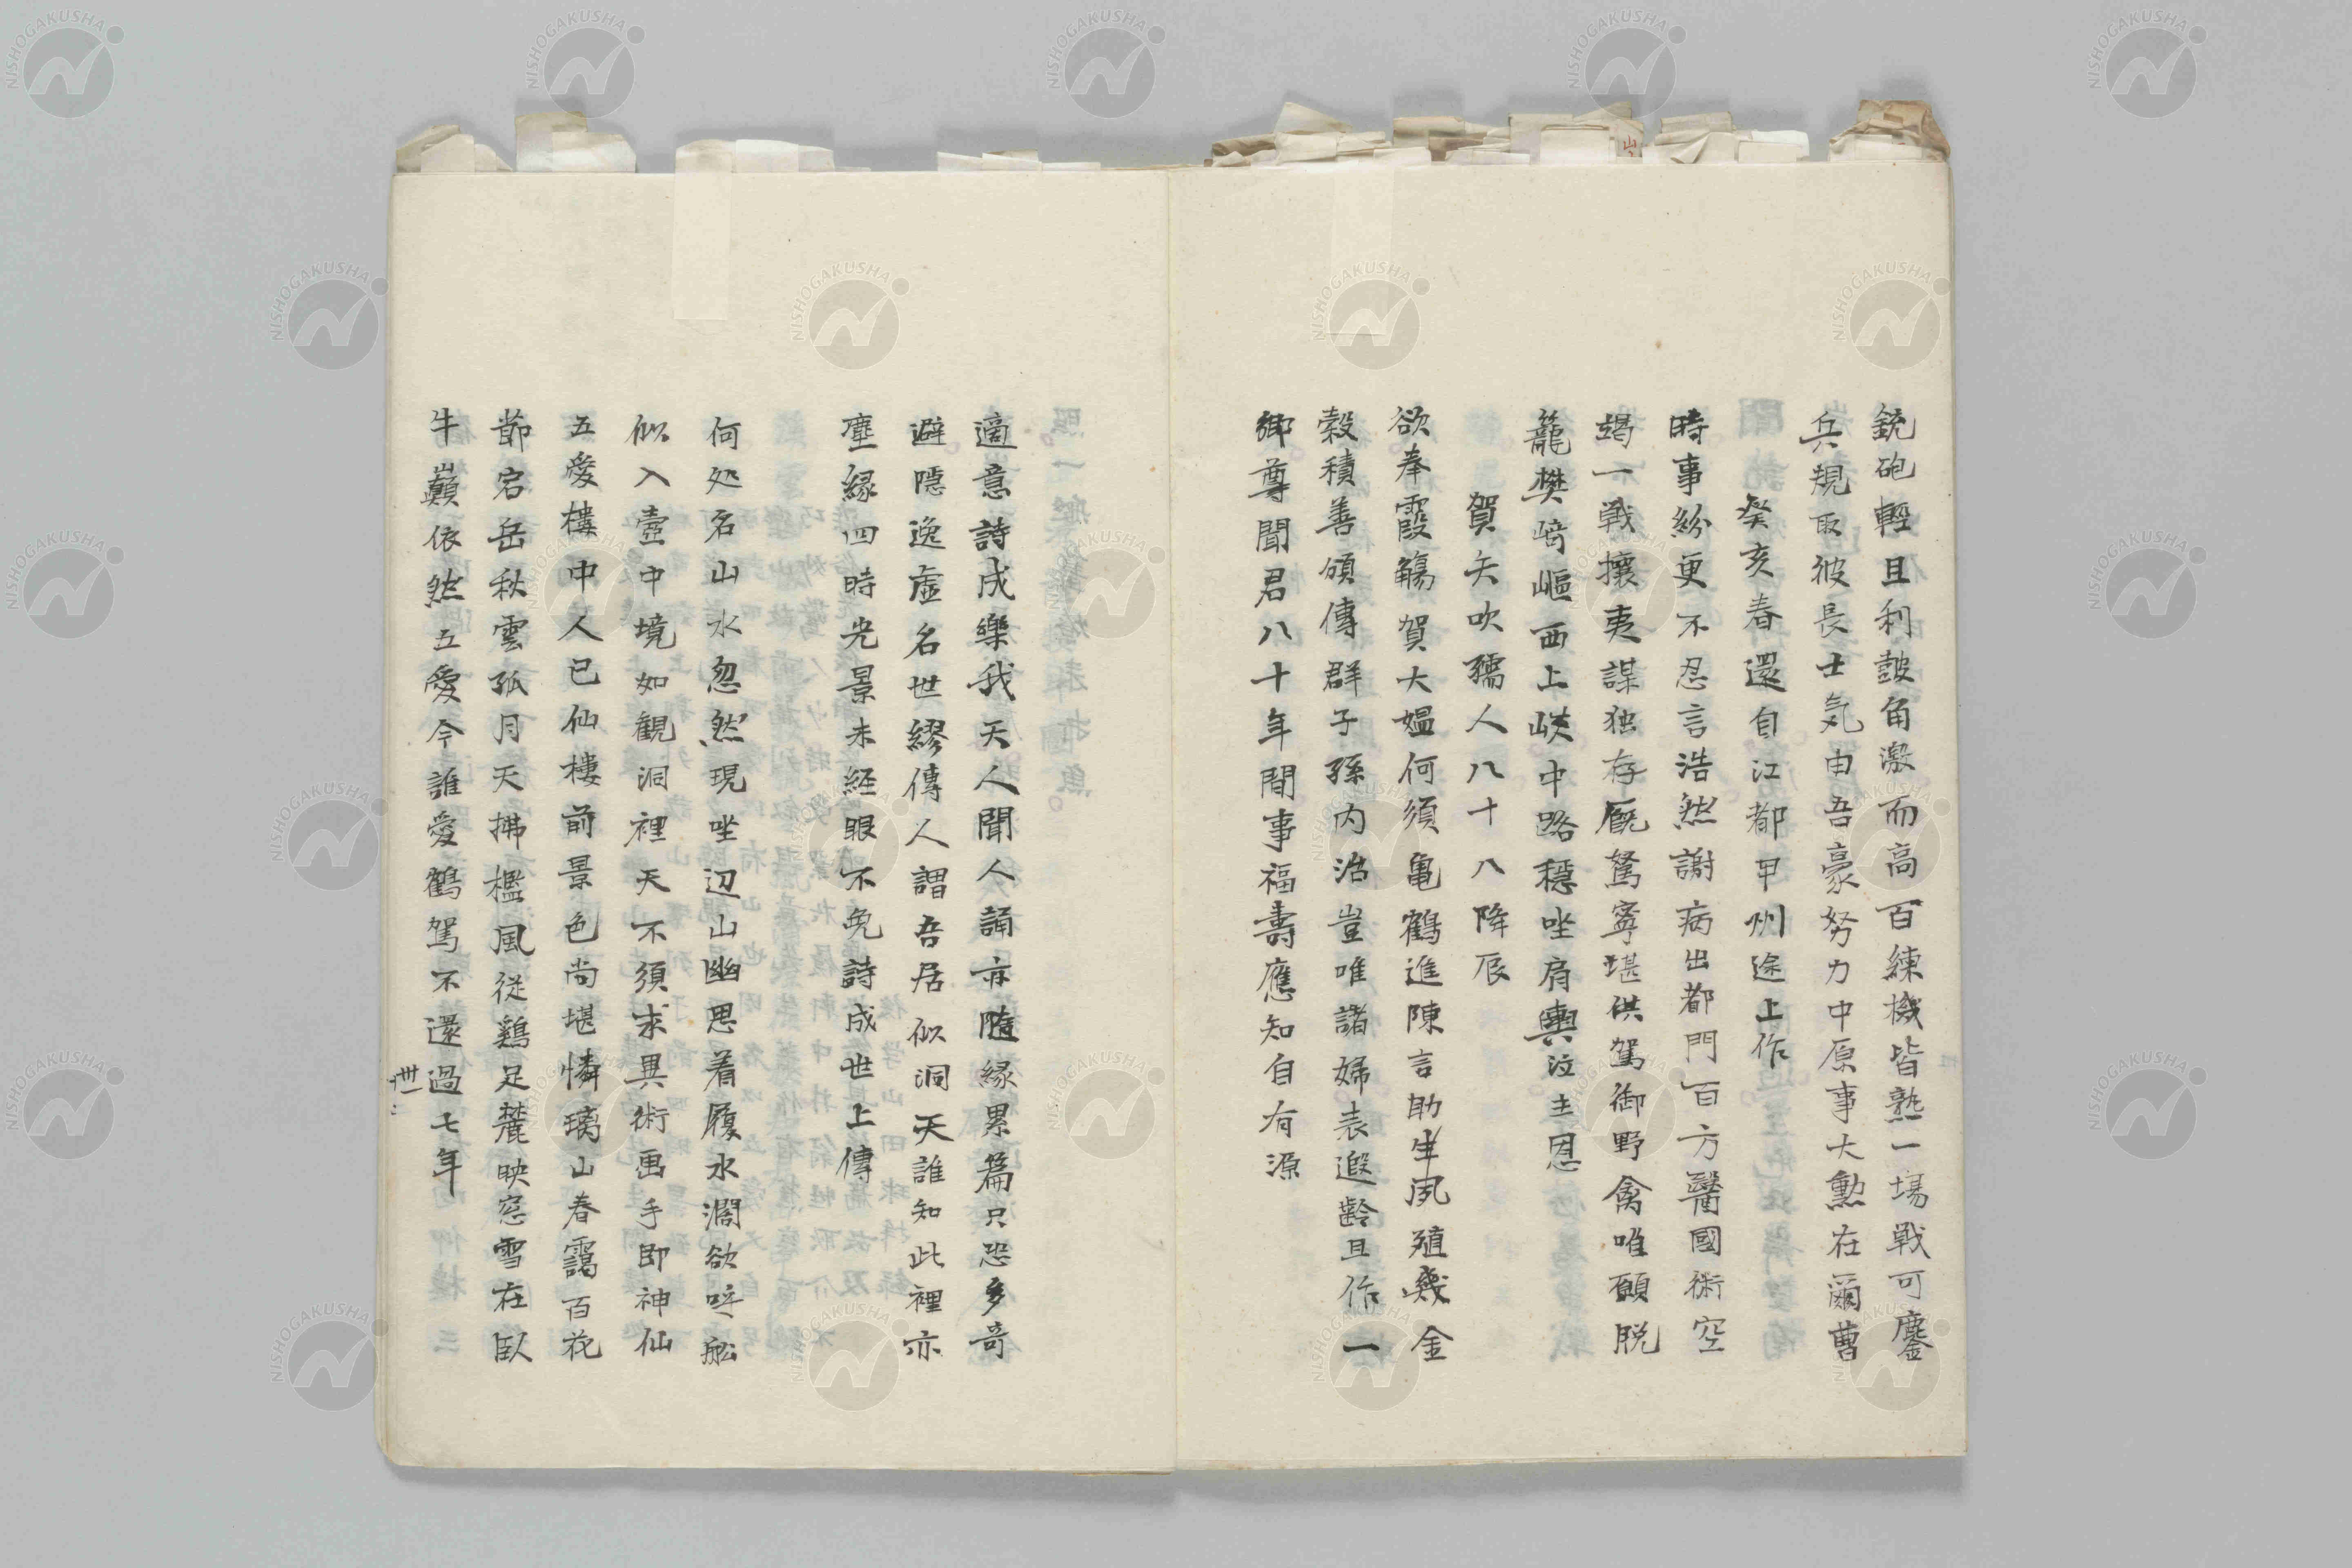 銃砲輕且利皷角激而高百練機皆熟一場戦可鏖
兵規取彼長士気由吾豪努力中原事大勲在爾曹
癸亥春還自江都甲州途上作
時事紛更不忍言浩然謝病出都門百方醫國術空
竭一戦攘夷謀独存厩駑寧堪供駕御野禽唯願脱
籠樊﨑嶇西上峡中路穏坐肩輿泣主恩
賀矢吹孺人八十八降辰
欲奉霞觴賀大媼何須亀鶴進陳言助生夙殖幾金
穀積善頎傳群子孫内治豈唯諸婦表遐齢且作一
郷尊聞君八十年間事福壽應知自有源
適意詩成樂我天人聞人誦亦隨縁累篇只恐多奇
避隠逸虚名世繆傳人謂吾居似洞天誰知此裡亦
塵縁四時光景未経眼不免詩成世上傳
何処名山水忽然現坐辺山幽思着履水濶欲呼舩
似入壺中境如観洞裡天不須求異術画手即神仙
五愛樓中人已仙樓前景色尚堪憐璃山春靄百花
節宕岳秋雲孤月天拂檻風従鶏足麓映窓雪在臥
牛巓依然五愛今誰愛鶴駕不還過七年
卅一
NISHOGAKUSHA